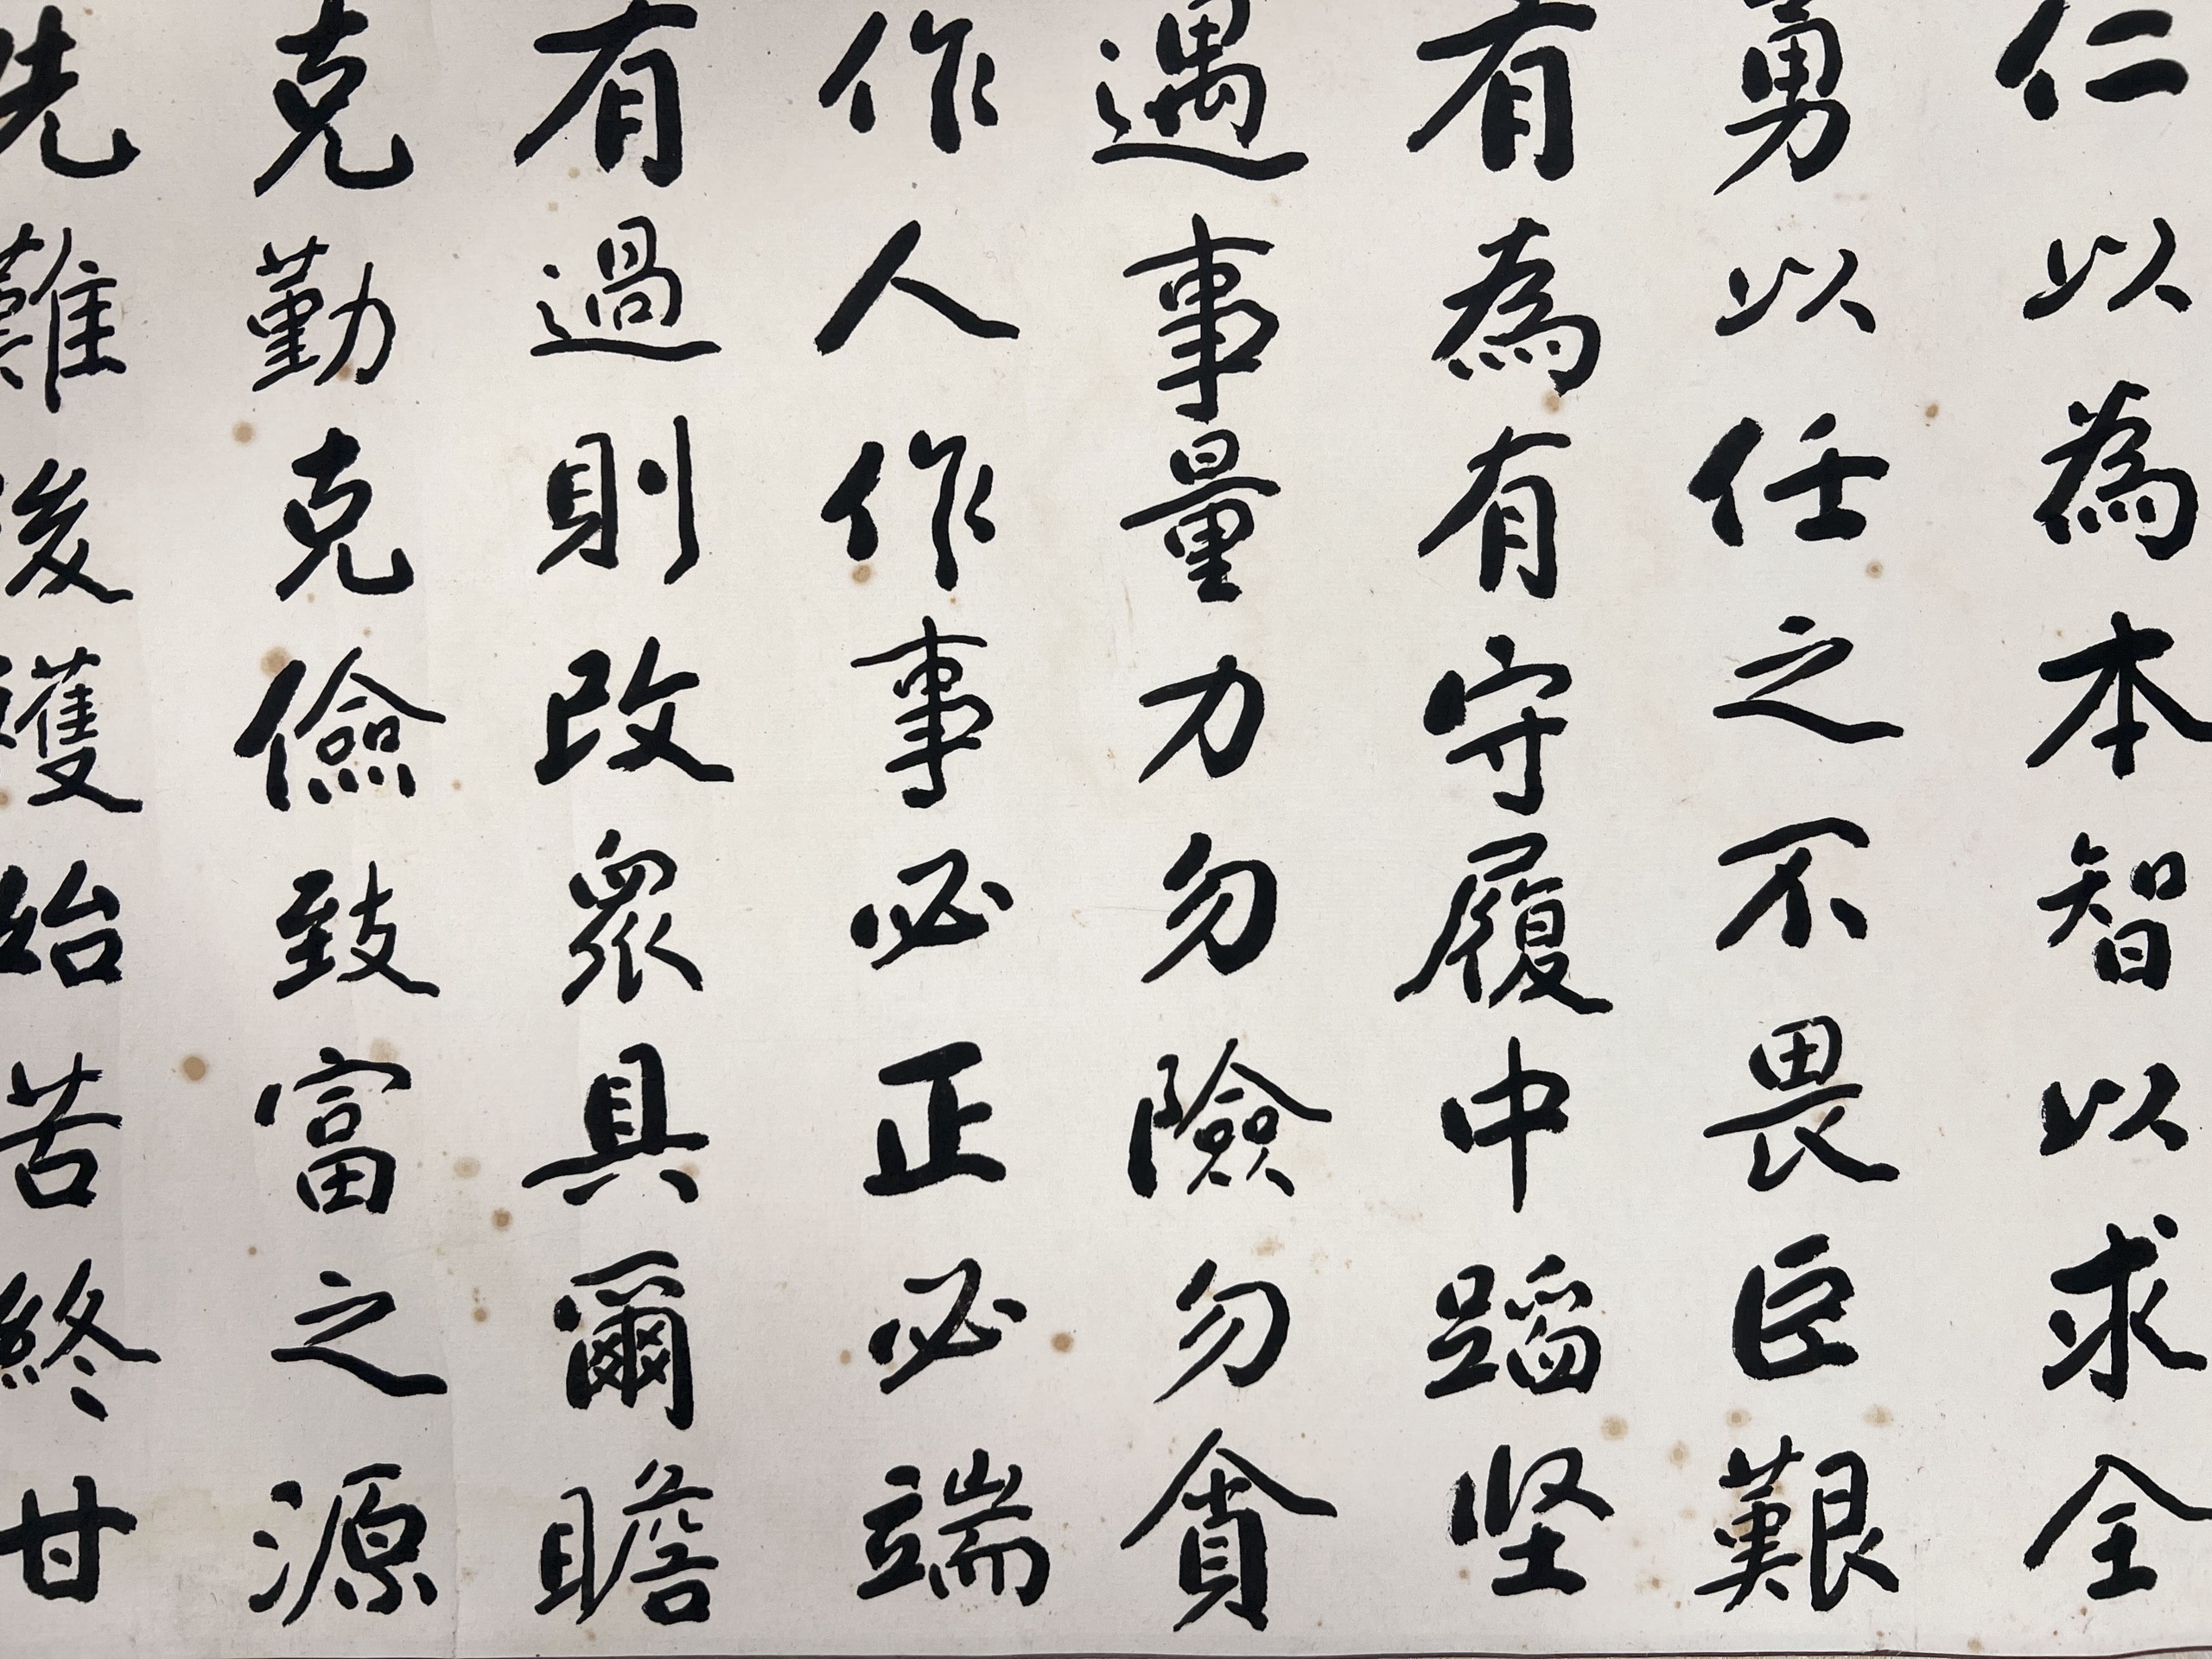 仁以為本智以求全
勇以任之不畏臣艱
有為有守履中蹈坚
遇事量力勿險勿貪
作人作事必正必端
有過則改眾具爾瞻
克勤克儉致富之源
先難後獲始苦終甘